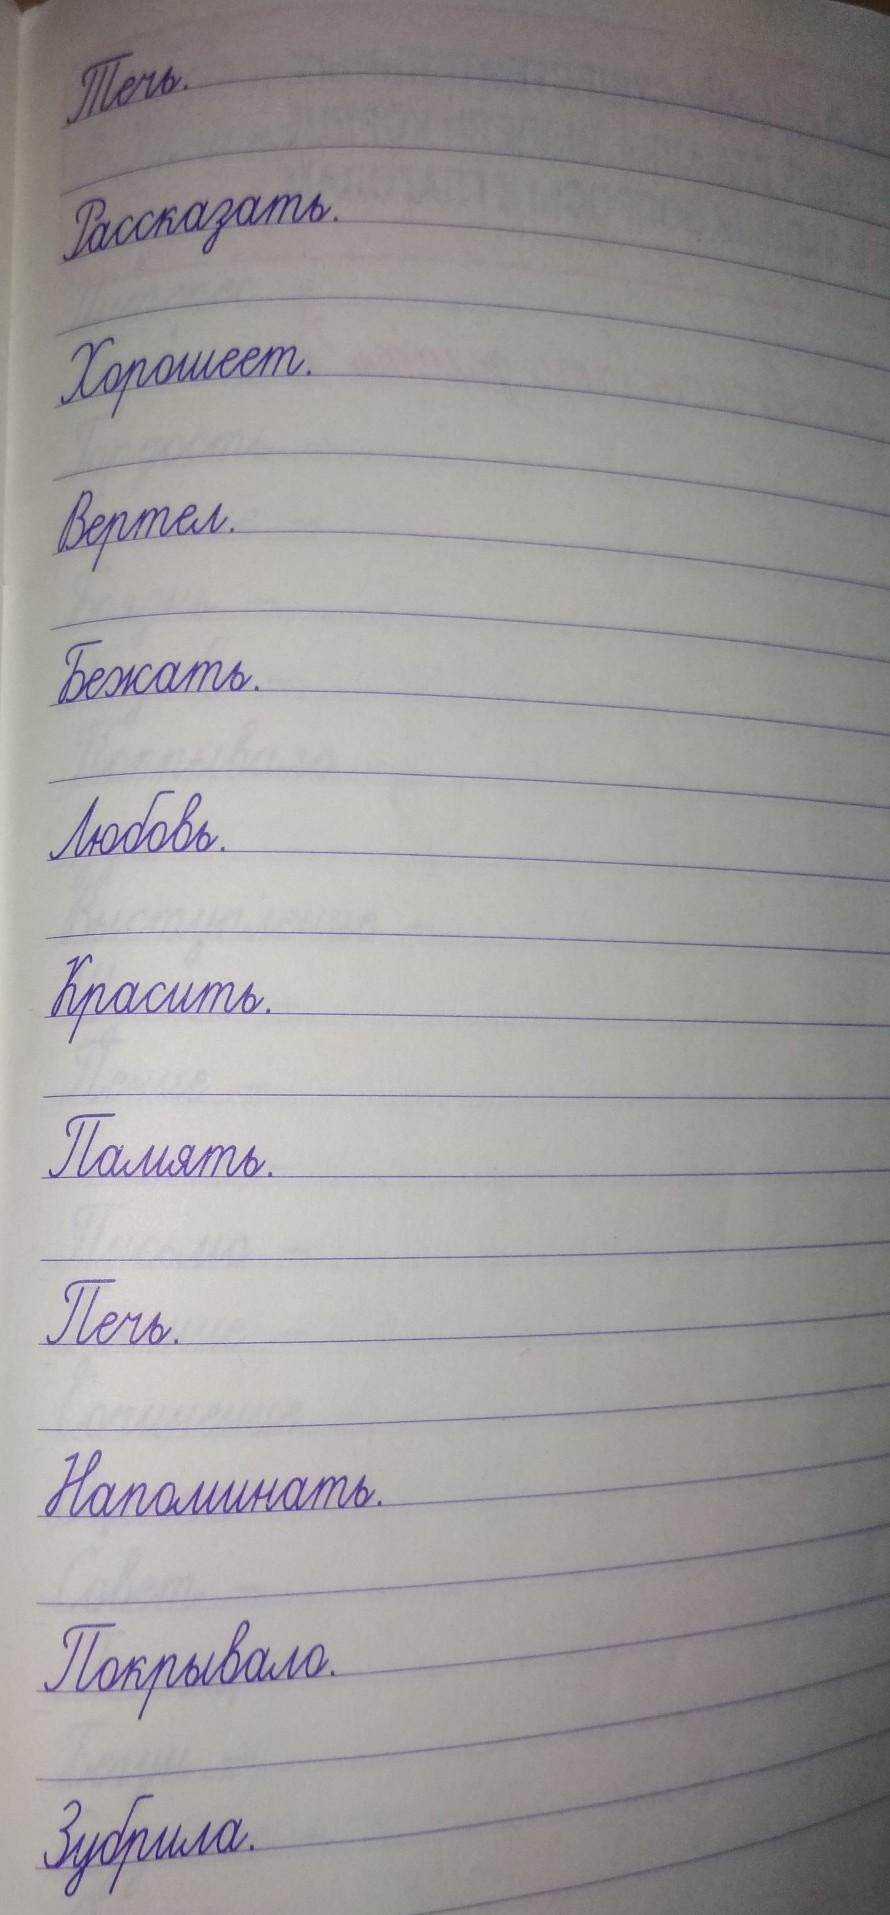 Течь.
Рассказать.
Хорошеет.
Вертел.
Бежать.
Любовь.
Красить.
Память.
Печь.
Напоминать.
Покрывало.
Зубрила.